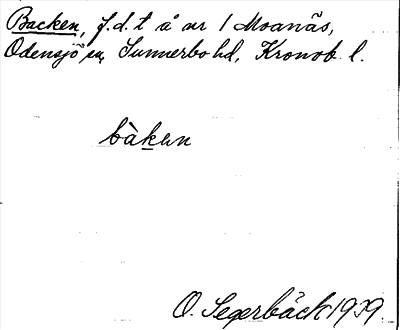 Backen, f.d. t å nr 1 Moanäs,
Odensjö sn, Sunnerbo hd, Kronob. l.
bàkɐn
O. Segerbäck 1939.